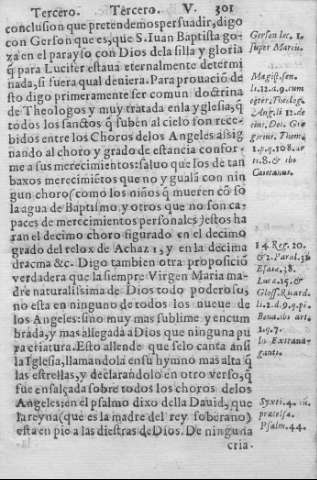 Tercero. Tercero. V. 301
conclusion que pretendemos persuadir, digo
con Gerson que es, que S. Iuan Baptista go-
za en el parayso con Dios dela silla y gloria
q̃ para Lucifer estaua eternalmente determi
nada, si fuera qual deniera. Para prouaciõ de
sto digo primeramente ser comun doctrina
de Theologos y muy tratada en la yglesia, q̃
todos los sanctos q̃ suben al cielo son rece-
bidos entre los Choros delos Angeles assig
nando al choro y grado de estancia confor-
me a sus merecimiẽtos: saluo que los de tan
baxos merecimiẽtos que no y gualã con nin
gun choro, como los niños q̃ mueren cõ so
la agua de Baptismo, y otros que no son ca-
paces de merecimientos personales, estos ha
ran el decimo choro figurado en el decimo
grado del relox de Achaz 1, y en la decima
dracma &c. Digo tambien otra proposiciõ
verdadera que la siempre Virgen Maria ma-
dre naturalissima de Dios todo poderoso,
no esta en ninguno de todos los nueue de
los Angeles: sino muy mas sublime y encum
brada, y mas allegada a Dios que ninguna pu
ra criatura. Esto allende que se lo canta ansi
la Iglesia, llamandola en su hymno mas alta q̃
las estrellas, y declarandolo en otro verso, q̃
fue ensalçada sobre todos los choros delos
Angeles: en el psalmo dixo della Dauid, que
la reyna (que es la madre del rey soberano)
esta en pie a las diestras de Dios. De ninguna
cria-
Gerson lec. 1.
super Marcũ.
Magist. sen.
li. 2. d. 9. cum
cęter. Theolog.
1. p. q. 108. ar
ti. 8. & ibi
Caietanus.
1 4. Reg. 20.
Esaia. 38.
Lucæ. 15. &
li. 2. d. 9. q. pi.
Bona. ibi art.
1. q. 7.
Io Extraua-
ganti.
Psalm. 44.